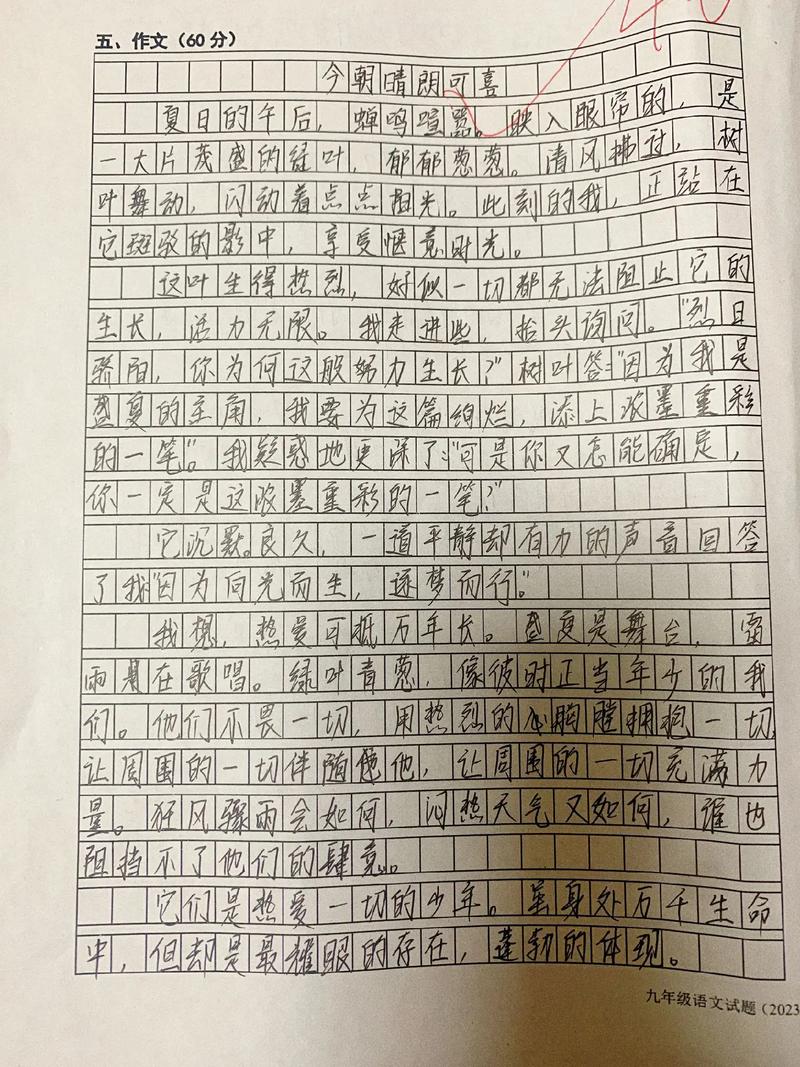 五、作文（60分）
今朝晴朗可喜
夏日的午后，蝉鸣喧嚣。映入眼帘的，是
一大片茂盛的绿叶，郁郁葱葱。清风拂过，树
叶舞动，闪动着点点阳光。此刻的我，正站在
它斑驳的影中，享受惬意时光。
这叶生得热烈，好似一切都无法阻止它的
生长，活力无限。我走进些，抬头询问。"烈日
骄阳，你为何这般努力生长？"树叶答："因为我是
盛夏的主角，我要为这篇绚烂，添上浓墨重彩
的一笔"。我疑惑地更深了："可是你又怎能确定，
你一定是这浓墨重彩的一笔？"
它沉默。良久，一道平静却有力的声音回答
了我"因为向光而生，逐梦而行。"
我想，热爱可抵万年长。盛夏是舞台，雷
雨是在歌唱。绿叶青葱，像彼时正当年少的我
们。他们不畏一切，用热烈的胸膛拥抱一切，
让周围的一切伴随他，让周围的一切充满力
量。狂风骤雨会如何，闷热天气又如何，谁也
阻挡不了他们的肆意。
它们是热爱一切的少年。虽身处万千生命
中，但却是最耀眼的存在，蓬勃的体现。
九年级语文试题（2023